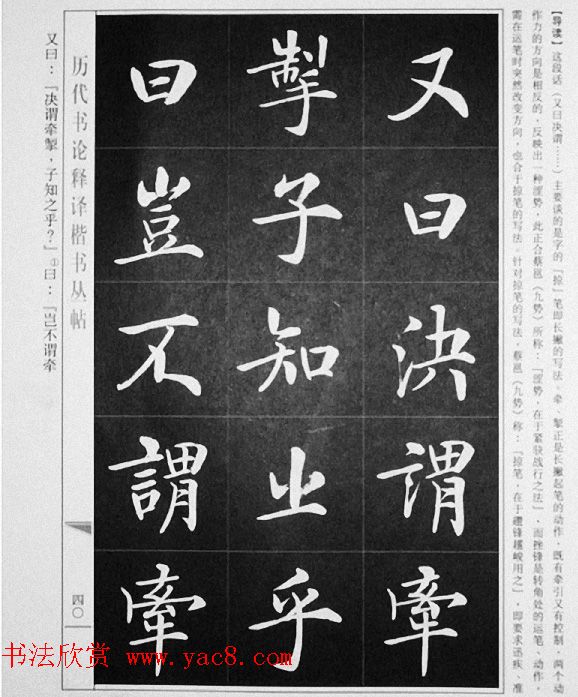 【导读】这段话（又曰决谓……）主要谈的是字的「掠」笔即长撇的写法。牵、掣正是长撇起笔的动作，既有牵引又有控制，两个动
作力的方向是相反的，反映出一种涩势，此正合蔡邕《九势》所称：「涩势，在于紧駃战行之法」，而挫锋是转角处的运笔，动作
需在运笔时突然改变方向，也合于掠笔的写法。针对掠笔的写法，蔡邕《九势》称：「掠笔，在于趱锋趯峻用之」，即要求迅疾、准
又曰決謂牽
掣子知之乎
曰豈不謂牽
历代书论释译楷书丛帖
四〇
又曰：「决谓牵掣，子知之乎？」①曰：「岂不谓牵
书法欣赏 www.yac8.com